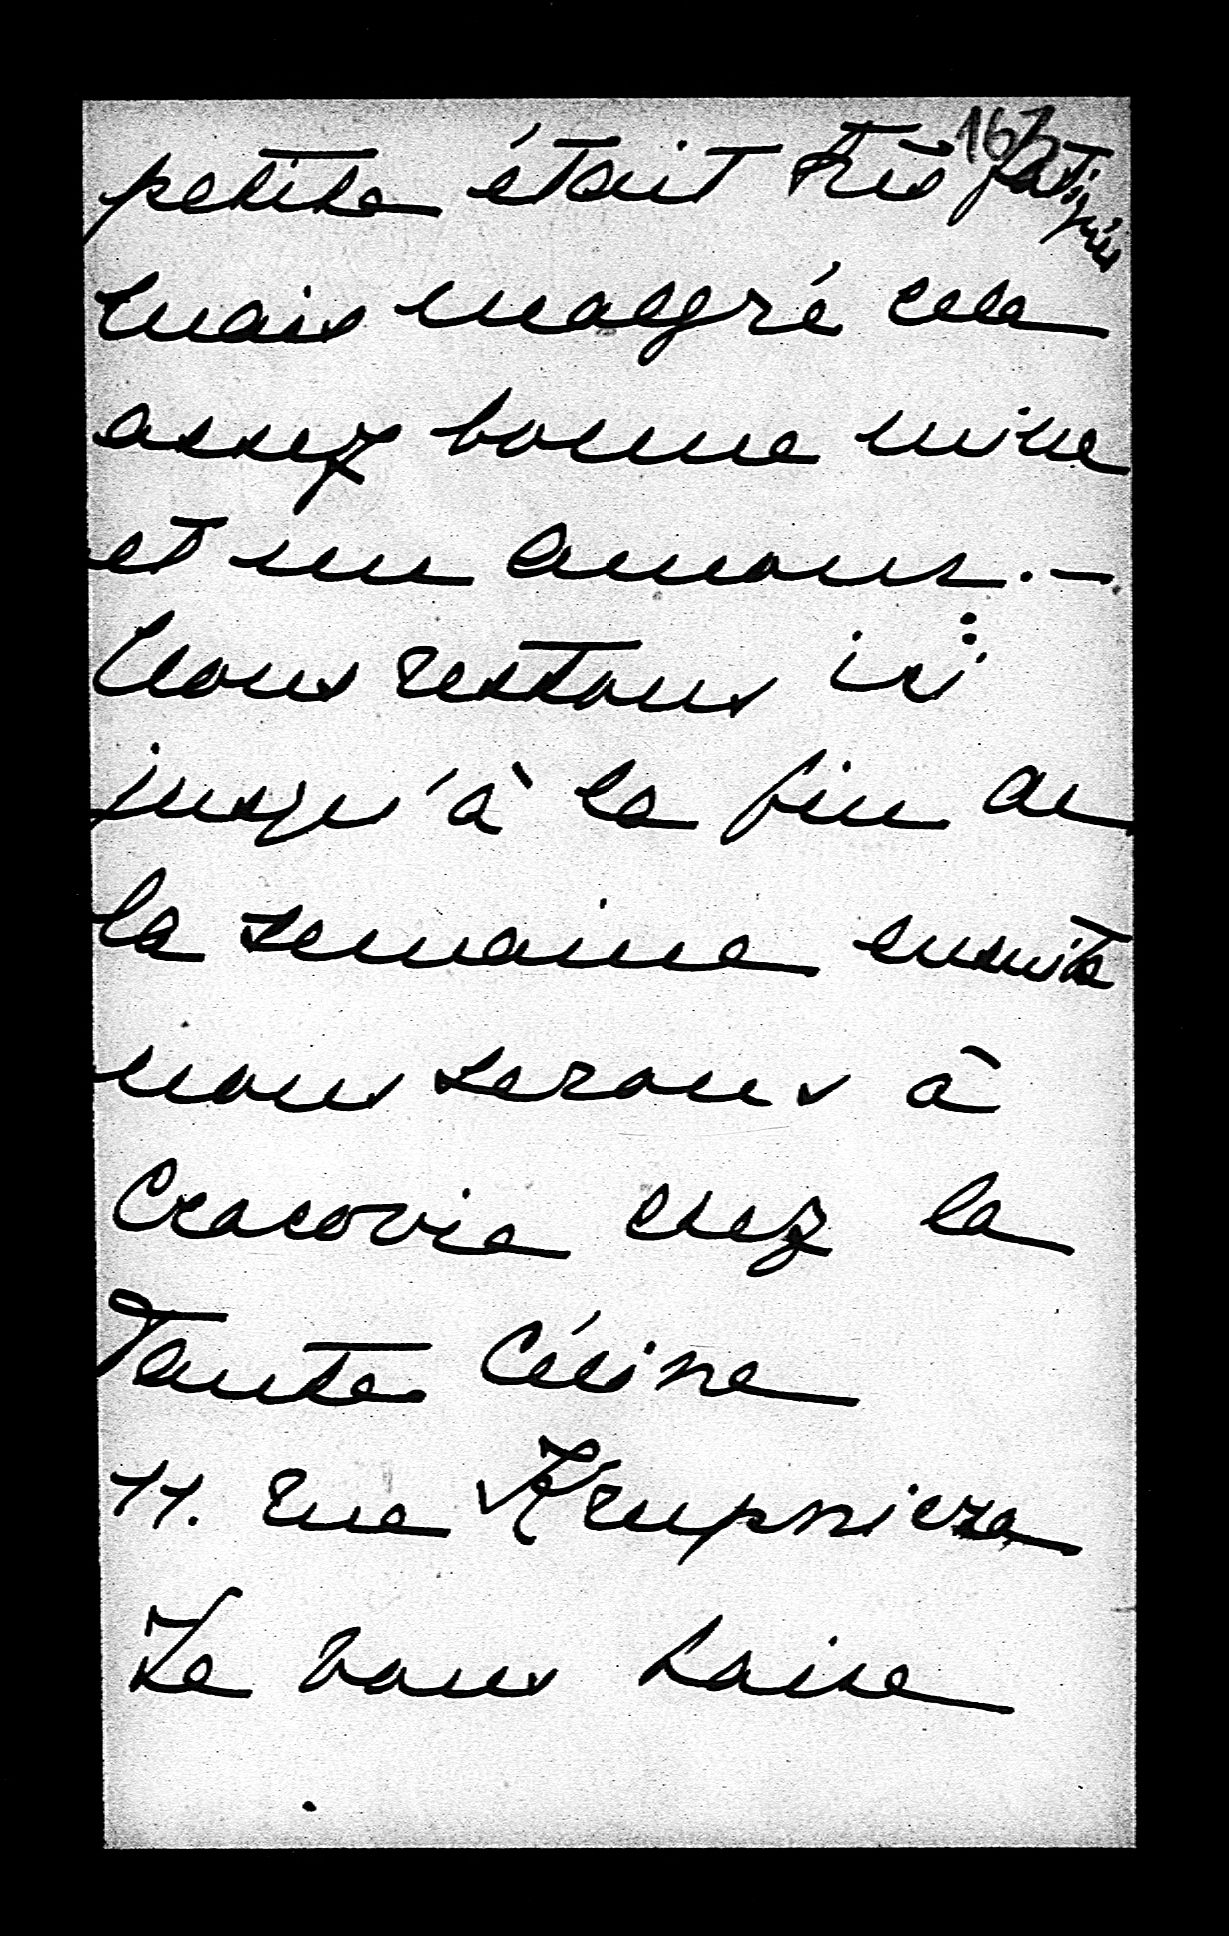 163
petite était très fatiguée
mais malgré cela
assez bonne mine
et un amour. —
Nous restons ici
jusqu'à la fin de
la semaine ensuite
nous serons à
Cracovie chez la
Tante Céline
11. rue Krupnicza
Je vous baise